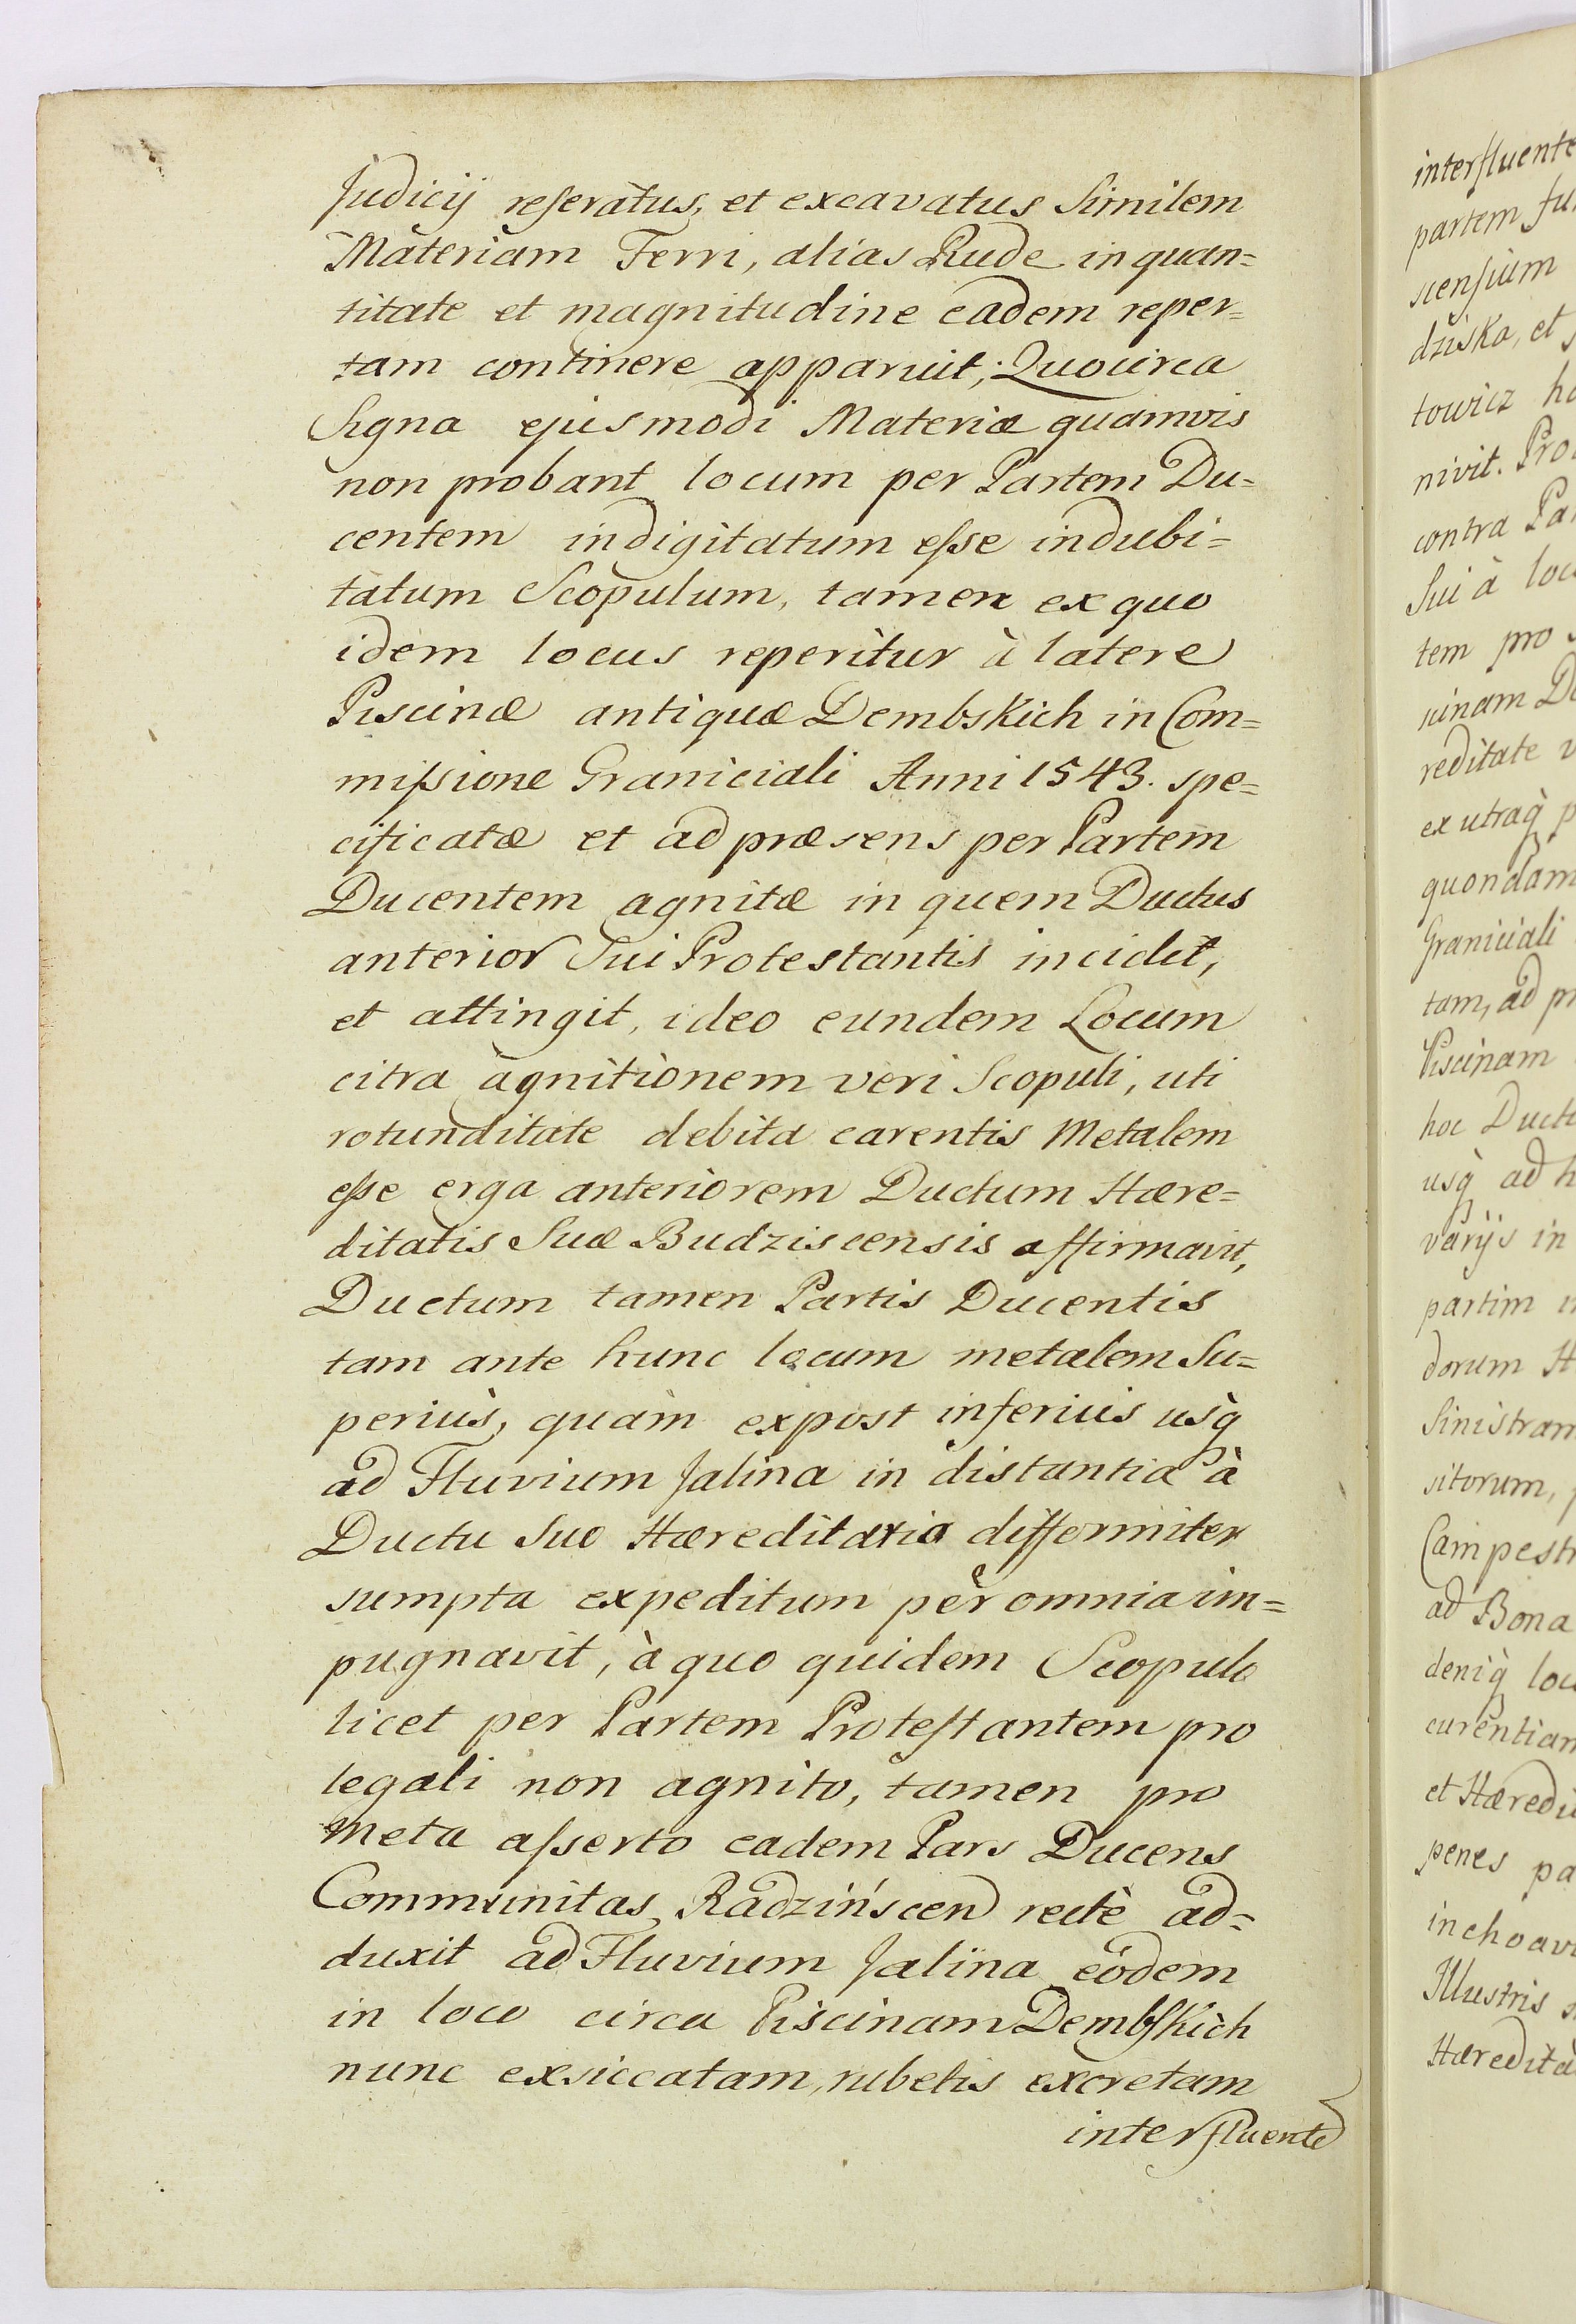 Judicij reseratus, et excavatus Similem
Materiam Ferri, alias Rude in quan=
titate et magnitudine eadem reper=
tam continere apparuit; Quocirca
Signa ejusmodi Materiæ quamvis
non probant locum per Partem Du=
centem indigitatum esse indubi=
tatum Scopulum, tamen ex quo
idem locus reperitur à latere
Piscinæ antiquæ Dembskich in Com=
missione Graniciali Anni 1543. spe=
cificatæ et ad præsens per Partem
Ducentem agnitæ in quem Ductus
anterior Sui Protestantis incidit,
et attingit, ideo eundem Locum
citra agnitionem veri Scopuli, uti
rotunditate debita carentis Metalem
esse erga anteriorem Ductum Hære=
ditatis Suæ Budziscensis affirmavit,
Ductum tamen Partis Ducentis
tam ante hunc locum metalem Su=
periùs, quàm expost inferius usq̀
ad Fluvium Jalina in distantia à
Ductu Suo Hæreditario difformiter
sumpta expeditum per omnia im=
pugnavit, à quo quidem Scopulo
licet per Partem Protestantem pro
legali non agnito, tamen pro
Meta asserto eadem Pars Ducens
Communitas Radzińscen rectè ad=
duxit ad Fluvium Jalina eódem
in loco circa Piscinam Dembskich
nunc exsiccatam, rubetis excretam
interfluente
interfluente
partem
scensium
dziska, et
towicz
nivit.
contra
Sui à
tem pro
cinam
reditate
ex utraq̀
quondam
Graniciali
tam, ad
Piscinam
hoc
usq̀ ad
varijs in
partim
dorum
Sinistram
sitorum,
Campest
ad Bona
deniq̀
curentiam
et
penes
inchoav
Illustris
Hæredita